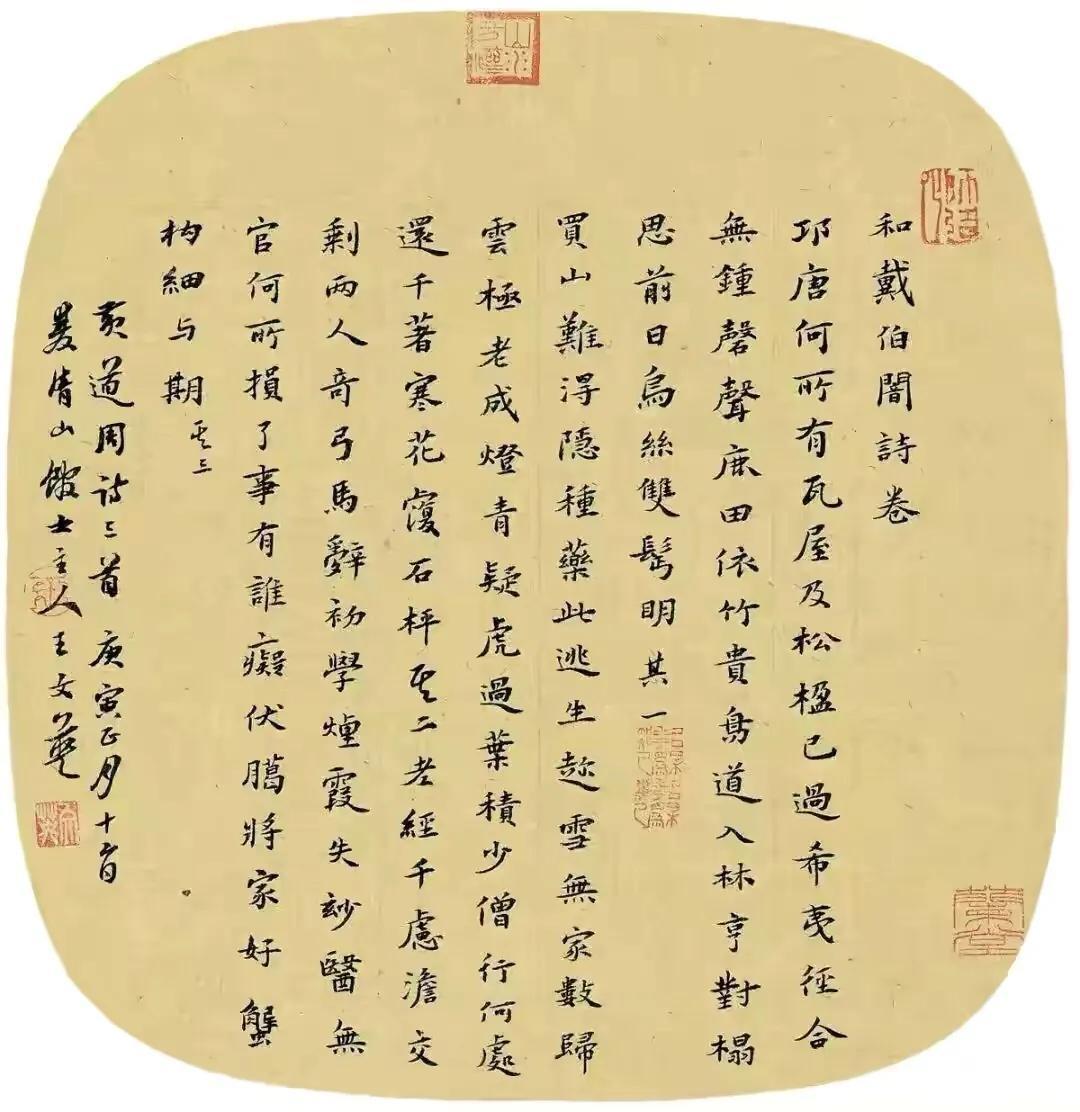 和戴伯闇詩卷
邛唐何所有瓦屋及松楹已過希夷徑合
無鍾磬聲鹿田依竹貴鳥道入林亨對榻
思前日烏絲雙髩明其一
買山難得隱種藥此逃生趂雪無家數歸
雲極老成燈青疑虎過葉積少僧行何處
還千著寒花覆石枰其二老經千慮澹交
剩兩人奇弓馬辭初學煙霞失妙醫無
官何所損了事有誰癡伏臈將家好蟹
构細与期其三
黄道周詩三首庚寅正月十有
菱倩山館士主人王文英